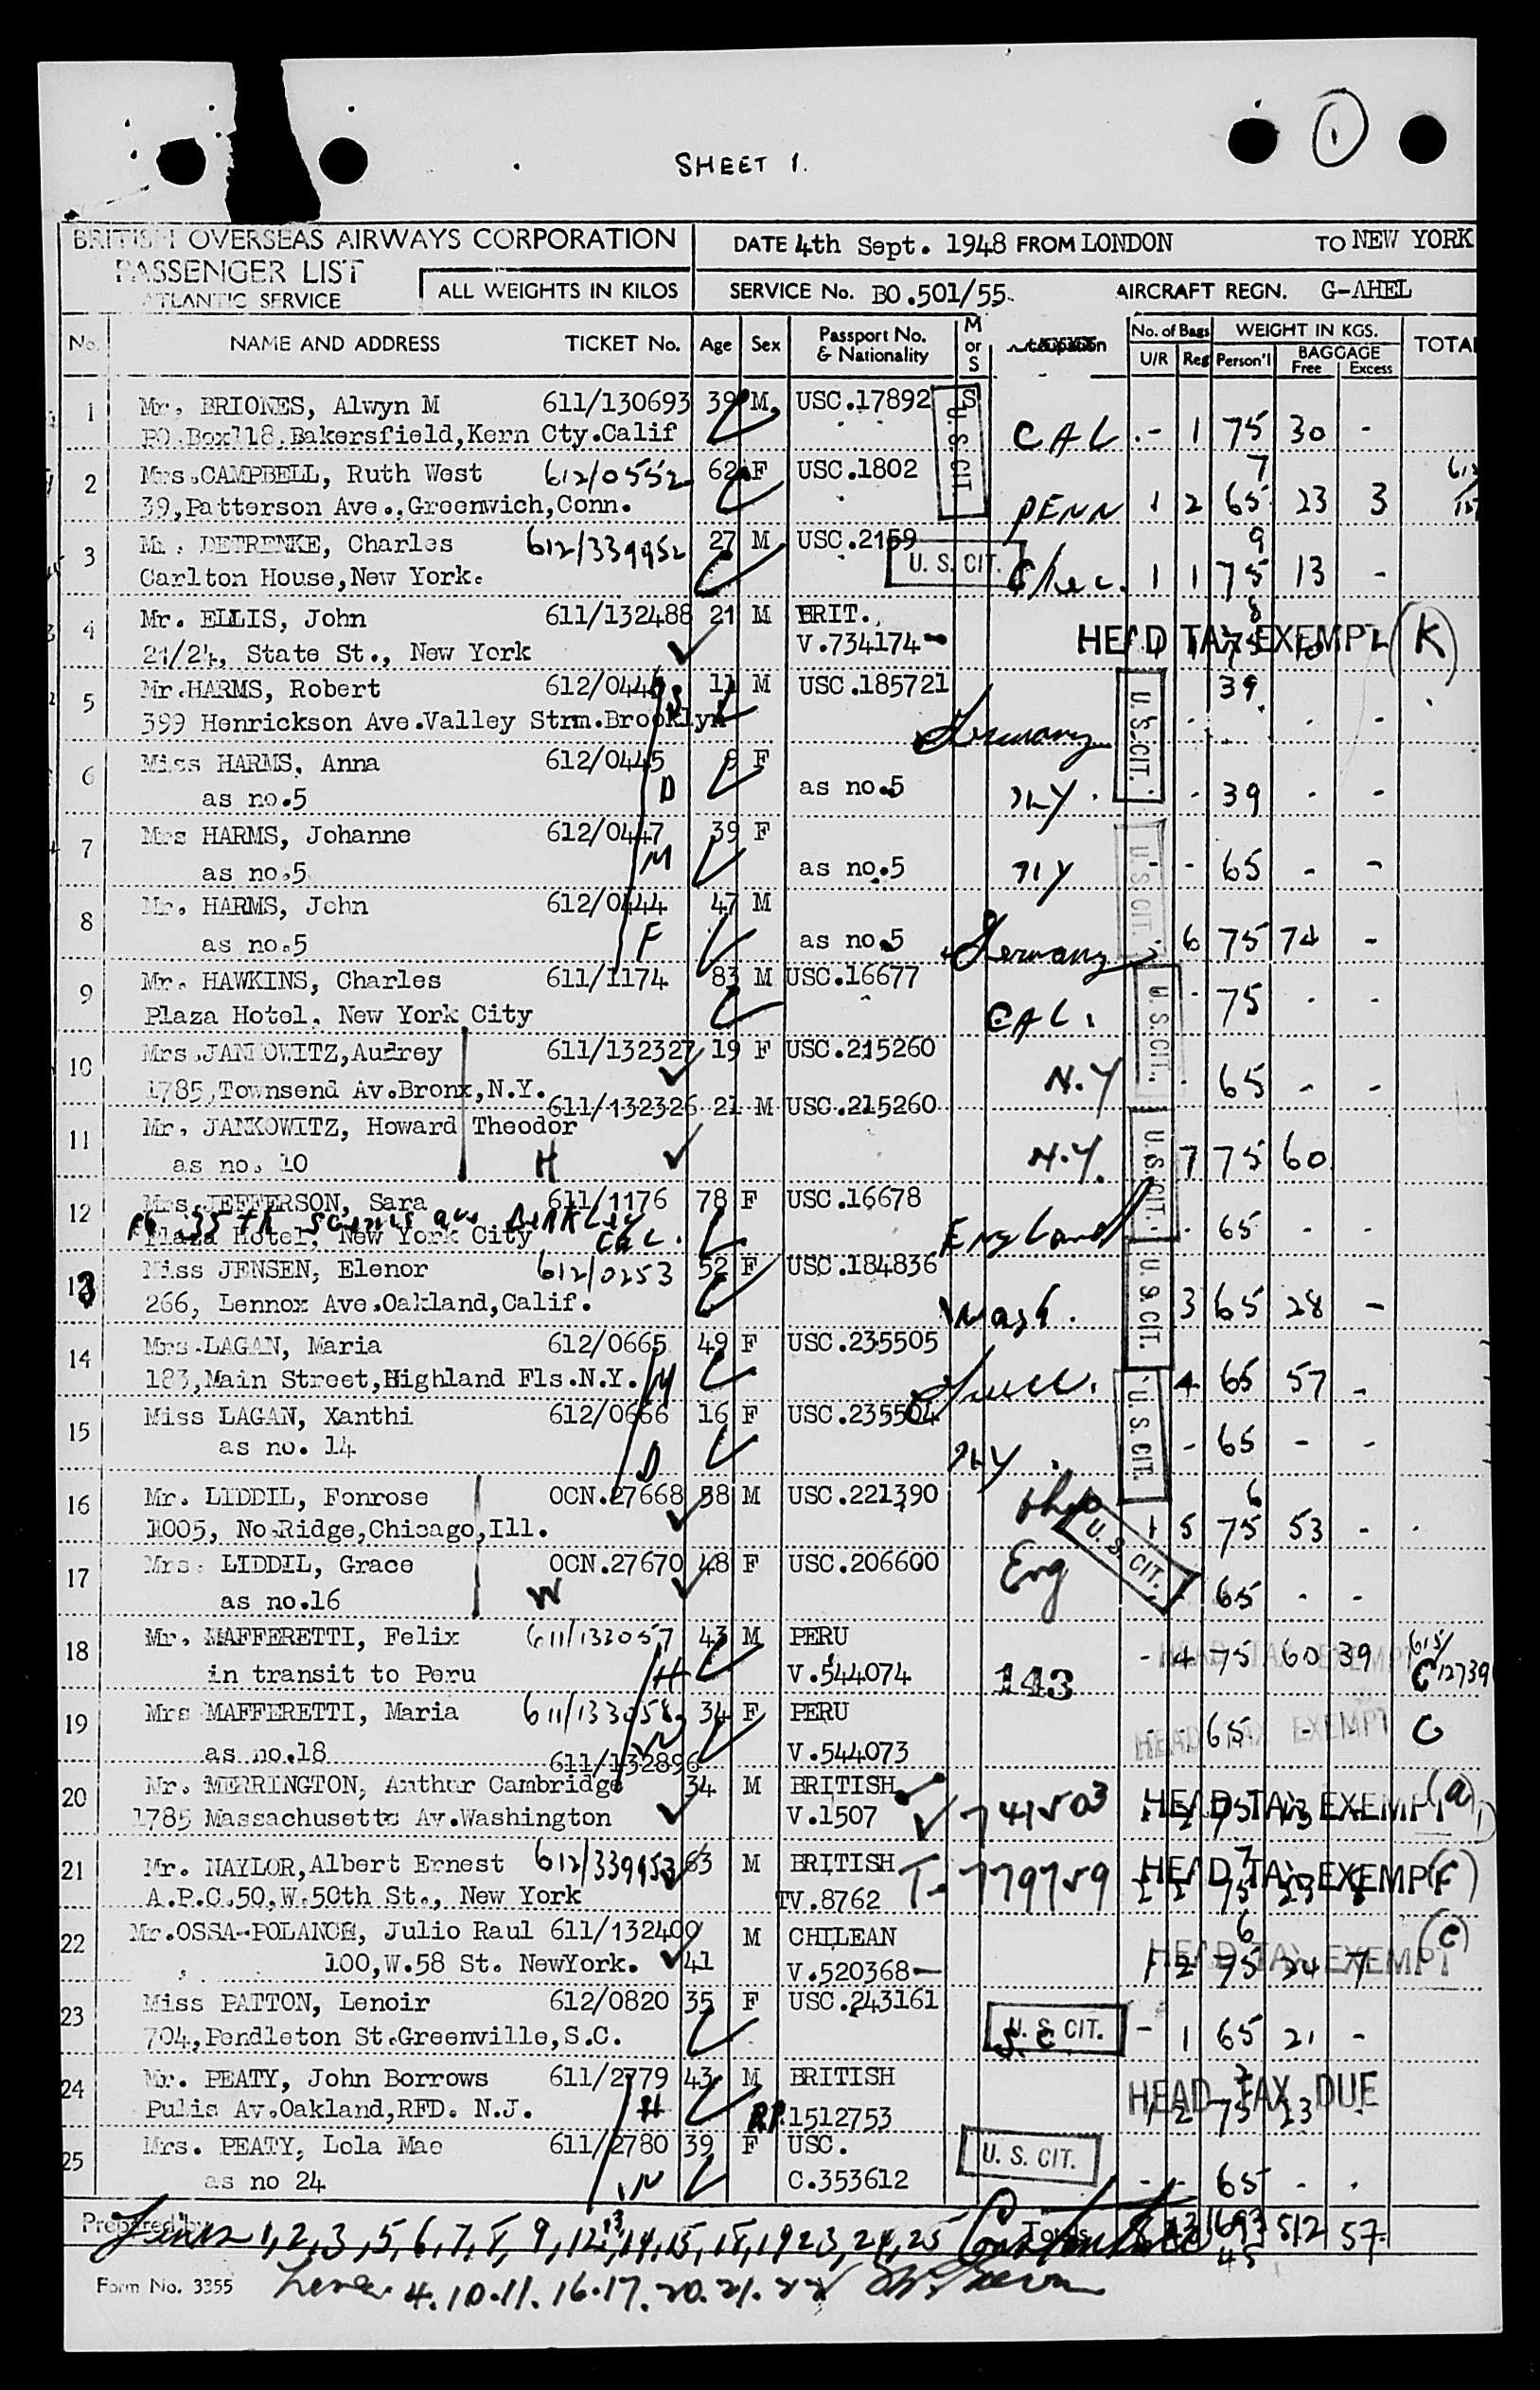 1
SHEET 1.
BRITISH OVERSEAS AIRWAYS CORPORATION
PASSENGER LIST
ATLANTIC SERVICE
ALL WEIGHTS IN KILOS
DATE 4th Sept. 1948 FROM LONDON TO NEW YORK
SERVICE No. BO.501/55. AIRCRAFT REGN. G-AHEL
No. NAME AND ADDRESS TICKET No. Age Sex Passport No. & Nationality M or S No. of Bags U/R Reg WEIGHT IN KGS. Person'l BAGGAGE Free Excess TOTAL
1 Mr. BRIONES, Alwyn M 611/130693 39 M. USC.17892 S U.S. CIT. CAL - 1 75 30 -
PO.Box118,Bakersfield,Kern Cty.Calif
2 Mrs.CAMPBELL, Ruth West 612/0552 62 F USC.1802 PENN 1 2 7 65 23 3
39,Patterson Ave.,Greenwich,Conn.
3 Mr. DETRENKE, Charles 612/339952 27 M USC.2159 U. S. CIT. 1 1 9 75 13 -
Carlton House,New York.
4 Mr. ELLIS, John 611/132488 21 M BRIT., 8
21/24, State St., New York V.734174- HEAD TAX EXEMPT (K)
5 Mr.HARMS, Robert 612/0446 S 11 M USC.185721 Germany U.S.CIT. 39 - -
399 Henrickson Ave.Valley Strm.Brooklyn
6 Miss HARMS, Anna 612/0445 D 9 F NY. - 39 - -
as no.5 as no.5
7 Mrs HARMS, Johanne 612/0447 M 39 F NY U.S.CIT. - 65 - -
as no.5 as no.5
8 Mr. HARMS, John 612/0444 F 47 M Germany 6 75 74 -
as no.5 as no.5
9 Mr. HAWKINS, Charles 611/1174 83 M USC.16677 CAL. U.S.CIT. - 75 - -
Plaza Hotel, New York City
10 Mrs.JANKOWITZ,Audrey 611/132327 19 F USC.215260 N.Y 65 - -
1785,Townsend Av.Bronx,N.Y.
11 611/132326 21 M USC.215260
Mr. JANKOWITZ, Howard Theodor
as no. 10 H N.Y. U.S.CIT. 7 75 60
12 Mrs.JEFFERSON, Sara 611/1176 78 F USC.16678 England - 65 - -
Plaza Hotel, New York City CAL.
13 Miss JENSEN, Elenor 612/0253 52 F USC.184836 Wash. U.S.CIT. 3 65 28 -
266, Lennox Ave.Oakland,Calif.
14 Mrs.LAGAN, Maria 612/0665 M 49 F USC.235505 4 65 57 -
183,Main Street,Highland Fls.N.Y.
15 Miss LAGAN, Xanthi 612/0666 D 16 F USC.235504 NY U.S.CIT. - 65 - -
as no. 14
16 Mr. LIDDIL, Fonrose OCN.27668 58 M USC.221390 U.S. CIT. 1 5 6 75 53 -
1005, No.Ridge,Chicago,Ill.
17 Mrs. LIDDIL, Grace OCN.27670 48 F USC.206600 Eng 65 - -
as no.16 W
18 Mr. MAFFERETTI, Felix 611/133057 H 43 M PERU - 4 75 60 39 615/
in transit to Peru V.544074 143 HEAD TAX EXEMPT C 12739
19 Mrs MAFFERETTI, Maria 611/133058 W 34 F PERU - - 65 C
as no.18 V.544073 HEAD TAX EXEMPT
20 611/132896
Mr. MERRINGTON, Anthur Cambridge 34 M BRITISH
1785 Massachusetts Av.Washington V.1507 741503 HEAD TAX EXEMPT (a)
21 Mr. NAYLOR,Albert Ernest 612/339953 63 M BRITISH T- 779759 7 HEAD TAX EXEMPT (F)
A.P.C.50,W.50th St., New York TV.8762
22 Mr.OSSA-POLANCE, Julio Raul 611/132400 M CHILEAN 6 (C)
100,W.58 St. NewYork. 41 V.520368- HEAD TAX EXEMPT 1 2 75 24 7
23 Miss PATTON, Lenoir 612/0820 35 F USC.243161
704,Pendleton St.Greenville,S.C. S.C. U. S. CIT. - 1 65 21 -
24 Mr. PEATY, John Borrows 611/2779 H 43 M BRITISH HEAD TAX DUE
Pulis Av.Oakland,RFD. N.J. R.P. 1512753 1 2 75 23
25 Mrs. PEATY, Lola Mae 611/2780 W 39 F USC. U. S. CIT.
as no 24 C.353612 - - 65 - .
Prepared by Lines 1,2,3,5,6,7,8,9,12,13,14,15,18,19,23,24,25 Totals 1693 512 57
45
Form No. 3355 Lines 4.10.11.16.17.20.21.22